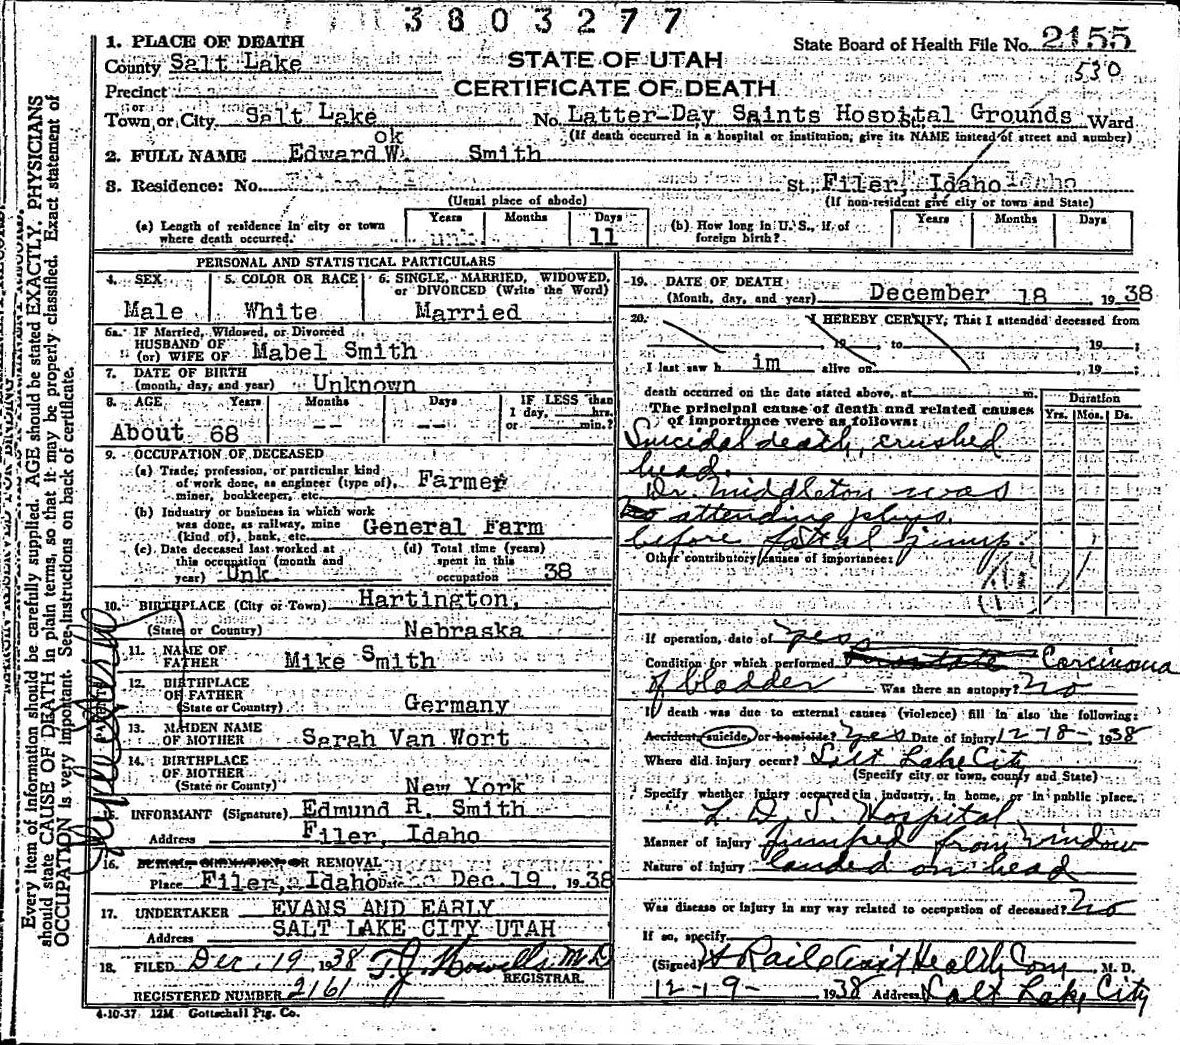 3803277
State Board of Health File No. 2155
530
STATE OF UTAH
CERTIFICATE OF DEATH
1. PLACE OF DEATH
County Salt Lake
Precinct
or
Town or City Salt Lake No. Latter-Day Saints Hospital Grounds St. Ward
(If death occurred in a hospital or institution, give its NAME instead of street and number)
ok
2. FULL NAME Edward W. Smith
3. Residence: No. St. Filer, Idaho Idaho
(Usual place of abode) (If non-resident give city or town and State)
(a) Length of residence in city or town where death occurred. Years unk. Months Days 11
(b) How long in U. S., if of foreign birth? Years Months Days
PERSONAL AND STATISTICAL PARTICULARS
4. SEX Male
5. COLOR OR RACE White
6. SINGLE, MARRIED, WIDOWED, or DIVORCED (Write the Word) Married
6a. IF Married, Widowed, or Divorced
HUSBAND OF
(or) WIFE OF Mabel Smith
7. DATE OF BIRTH
(month, day, and year) Unknown
8. AGE Years Months Days IF LESS than
1 day, hrs.
or min.?
About 68 -- --
9. OCCUPATION OF DECEASED
(a) Trade, profession, or particular kind
of work done, as engineer (type of),
miner, bookkeeper, etc. Farmer
(b) Industry or business in which work
was done, as railway, mine
(kind of), bank, etc. General Farm
(c) Date deceased last worked at
this occupation (month and
year) Unk.
(d) Total time (years)
spent in this
occupation 38
10. BIRTHPLACE (City or Town) Hartington,
(State or Country) Nebraska
11. NAME OF
FATHER Mike Smith
12. BIRTHPLACE
OF FATHER
(State or Country) Germany
13. MAIDEN NAME
OF MOTHER Sarah Van Wort
14. BIRTHPLACE
OF MOTHER
(State or Country) New York
15. INFORMANT (Signature) Edmund R. Smith
Address Filer, Idaho
16. BURIAL, CREMATION OR REMOVAL
Place Filer, Idaho Date Dec. 19, 1938
17. UNDERTAKER EVANS AND EARLY
Address SALT LAKE CITY UTAH
18. FILED Dec. 19, 1938 T. J. Howells M.D.
REGISTRAR.
REGISTERED NUMBER 2161
4-10-37 12M Gottschall Ptg. Co.
19. DATE OF DEATH
(Month, day, and year) December 18 1938
20. I HEREBY CERTIFY, That I attended deceased from
19 to 19 ;
I last saw h im alive on 19 ;
death occurred on the date stated above, at m.
Duration
The principal cause of death and related causes
of importance were as follows: Yrs. Mos. Ds.
Suicidal death, crushed
head.
Dr. Middleton was
attending phys.
before fatal jump.
Other contributory causes of importance:
If operation, date of yes
Condition for which performed Prostate Carcinoma
of bladder Was there an autopsy? No
If death was due to external causes (violence) fill in also the following:
Accident, suicide, or homicide? yes Date of injury 12-18- 1938
Where did injury occur? Salt Lake City
(Specify city or town, county and State)
Specify whether injury occurred in industry, in home, or in public place.
L. D. S. Hospital
Manner of injury jumped from window
Nature of injury landed on head
Was disease or injury in any way related to occupation of deceased? No
If so, specify
(Signed) Health Com M. D.
12-19- 1938 Address Salt Lake City
Every item of information should be carefully supplied. AGE should be stated EXACTLY. PHYSICIANS
should state CAUSE OF DEATH in plain terms, so that it may be properly classified. Exact statement of
OCCUPATION is very important. See instructions on back of certificate.